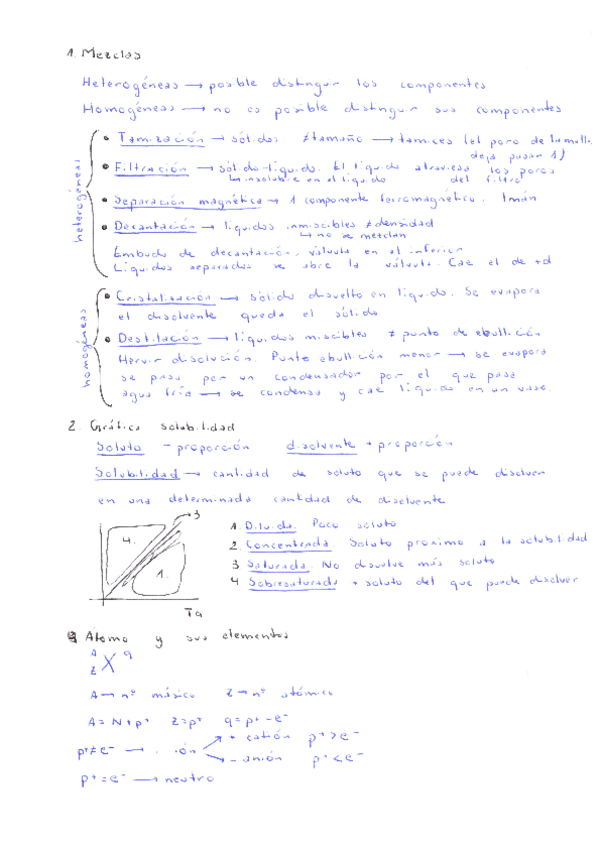 1. Mezclas
Heterogéneas → posible distinguir los componentes
Homogéneas → no es posible distinguir sus componentes
heterogéneas
• Tamización → sólidos ≠ tamaño → tamices (el poro de la malla
deja pasar 1)
• Filtración → sólido-líquido. El líquido atraviesa los poros
↳ insoluble en el líquido del filtro
• Separación magnética → 1 componente ferromagnético. Imán
• Decantación → líquidos inmiscibles ≠ densidad
↳ no se mezclan
Embudo de decantación, válvula en el inferior
Líquidos separados se abre la válvula. Cae el de +d
homogéneas
• Cristalización → sólido disuelto en líquido. Se evapora
el disolvente queda el sólido
• Destilación → líquidos miscibles ≠ punto de ebullición
Hervir disolución. Punto ebullición menor → se evapora
se pasa por un condensador por el que pasa
agua fría → se condensa y cae líquido en un vaso.
2. Gráfica solubilidad
Soluto - proporción disolvente + proporción
Solubilidad → cantidad de soluto que se puede disolver
en una determinada cantidad de disolvente
3
4.
1.
Ta
1. Diluida. Poco soluto
2. Concentrada. Soluto proximo a la solubilidad
3 Saturada. No disuelve más soluto
4 Sobresaturada + soluto del que puede disolver
Átomo y sus elementos
A q
X
Z
A → nº másico Z → nº atómico
A = N + p⁺ Z = p⁺ q = p⁺ - e⁻
p⁺ ≠ e⁻ → ión
+ catión p⁺ > e⁻
- anión p⁺ < e⁻
p⁺ = e⁻ → neutro